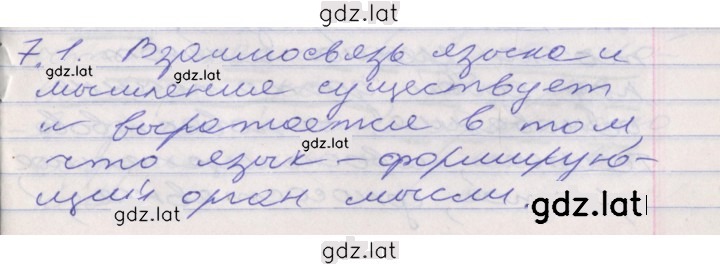 gdz.lat
7.1. Взаимосвязь языка и
gdz.lat gdz.lat
мышление существует
и выражается в том,
что язык – формирую-
gdz.lat
щий орган мысли.
gdz.lat
gdz.lat